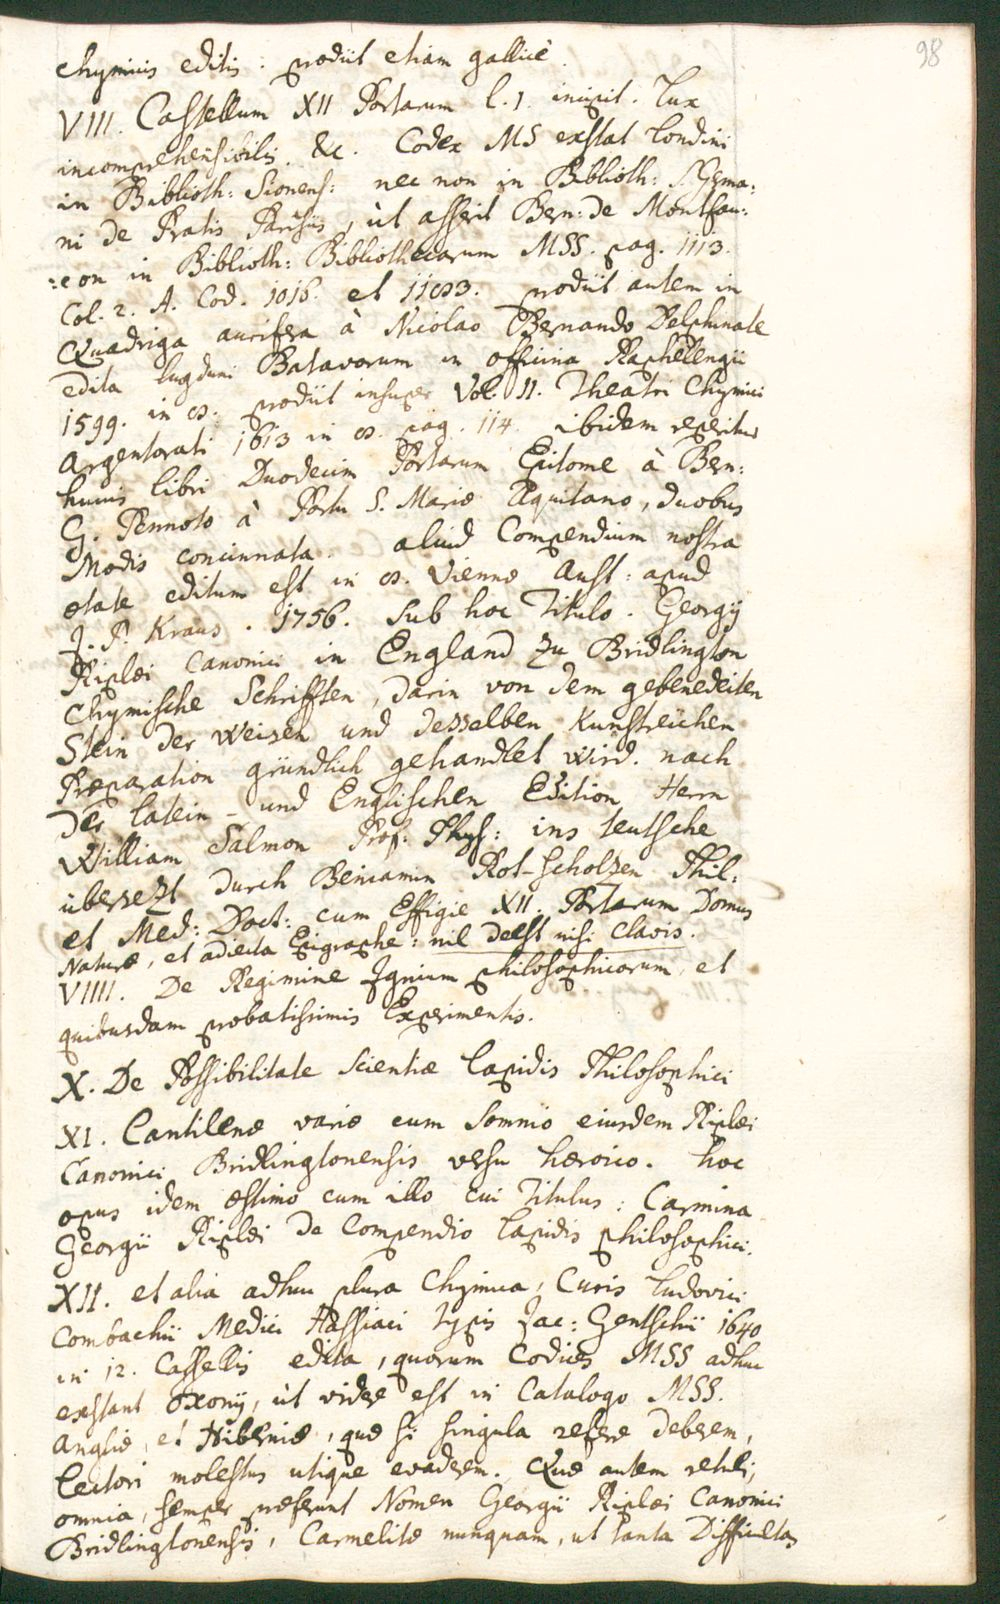 98
chymicis editis: prodiit etiam gallicè.
VIII. Castellum XII Portarum l. 1. incipit. Lux
incomprehensibilis. &c. Codex MS exstat Londini
in Biblioth: Sionens: nec non in Biblioth: S. Germa:
ni de Pratis Parisiis, ùt asserit Bern: de Montfau:
:con in Biblioth: Bibliothecarum MSS. pag. 1113.
Col. 2. A. Cod. 1016. et 11003. prodiit autem in
Quadriga aurifera à Nicolao Bernando Delphinate
edita Lugduni Batavorum in officina Raphelengii
1599. in 8. prodiit insuper Vol. II. Theatri Chymici
Argentorati 1613 in 8. pag. 114. ibidem reperitur
huius libri Duodecim Portarum Epitome à Bern:
G. Pennoto à Portu S. Mariæ Aquitano, duobus
Modis concinnata. aliud Compendium nostra
ætate editum est in 8. Viennæ Aust: apud
J. P. Kraus. 1756. sub hoc Titulo. Georgÿ
Riplæi Canonici in England zu Bridlington
Chymische Schrifften, darin von dem gebenedeiten
Stein der Weisen und desselben Kunstreichen
Præparation gründlich gehandlet wird. nach
der latein- und Englischen Edition Herrn
William Salmon Prof: Phys: ins teutsche
übersezt durch Beniamin Rot-scholzen Phil:
et Med: Doct: cum Effigie XII. Portarum Domus
Naturæ, et adiecta Epigraphe: nil deest nisi clavis.
VIIII. De Regimine Ignium philosophicorum, et
quibusdam probatissimis Experimentis.
X. De Possibilitate Scientiæ Lapidis Philosophici
XI. Cantilenæ variæ cum Somnio eiusdem Riplæi
Canonici Bridlingtonensis versu heroico. hoc
opus idem æstimo cum illo cui Titulus: Carmina
Georgii Riplæi de Compendio Lapidis philosophici.
XII. et alia adhuc plura Chymica, Curis Ludovici
Combachii Medici Hassiaci typis Jac: Gentschii 1640
in 12. Cassellis edita, quorum Codices MSS adhuc
exstant Oxonÿ, ùt videre est in Catalogo MSS.
Angliæ, et Hiberniæ, quæ si singula refere deberem,
Lectori molestus utique evaderem. Quæ autem retuli,
omnia, semper præferunt Nomen Georgii Riplæi Canonici
Bridlingtonensis, Carmelitæ nunquam, ut tanta Difficultas